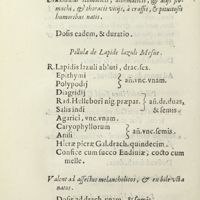 machi, & thoracis vitijs, à crassis, & pituitosis
humoribus natis.
Dosis eadem, & duratio.
Pillulæ de Lapide lazuli Mesuæ.
R. Lapidis lazuli abluti, drac. sex.
Epithymi
Polypodij } añ. vnc. vnam.
Diagridij
Rad. Hellebori nig. præpar.
Salis indi } añ. dr. duas, & semis
Agarici, vnc. vnam.
Caryophyllorum
Anisi } añ. vnc. semis.
Hieræ picræ Gal. drach. quindecim.
Confice cum succo Endiuiæ, cocto cum
melle.
Valent ad affectus melancholicos, & ex bile vsta
natos.